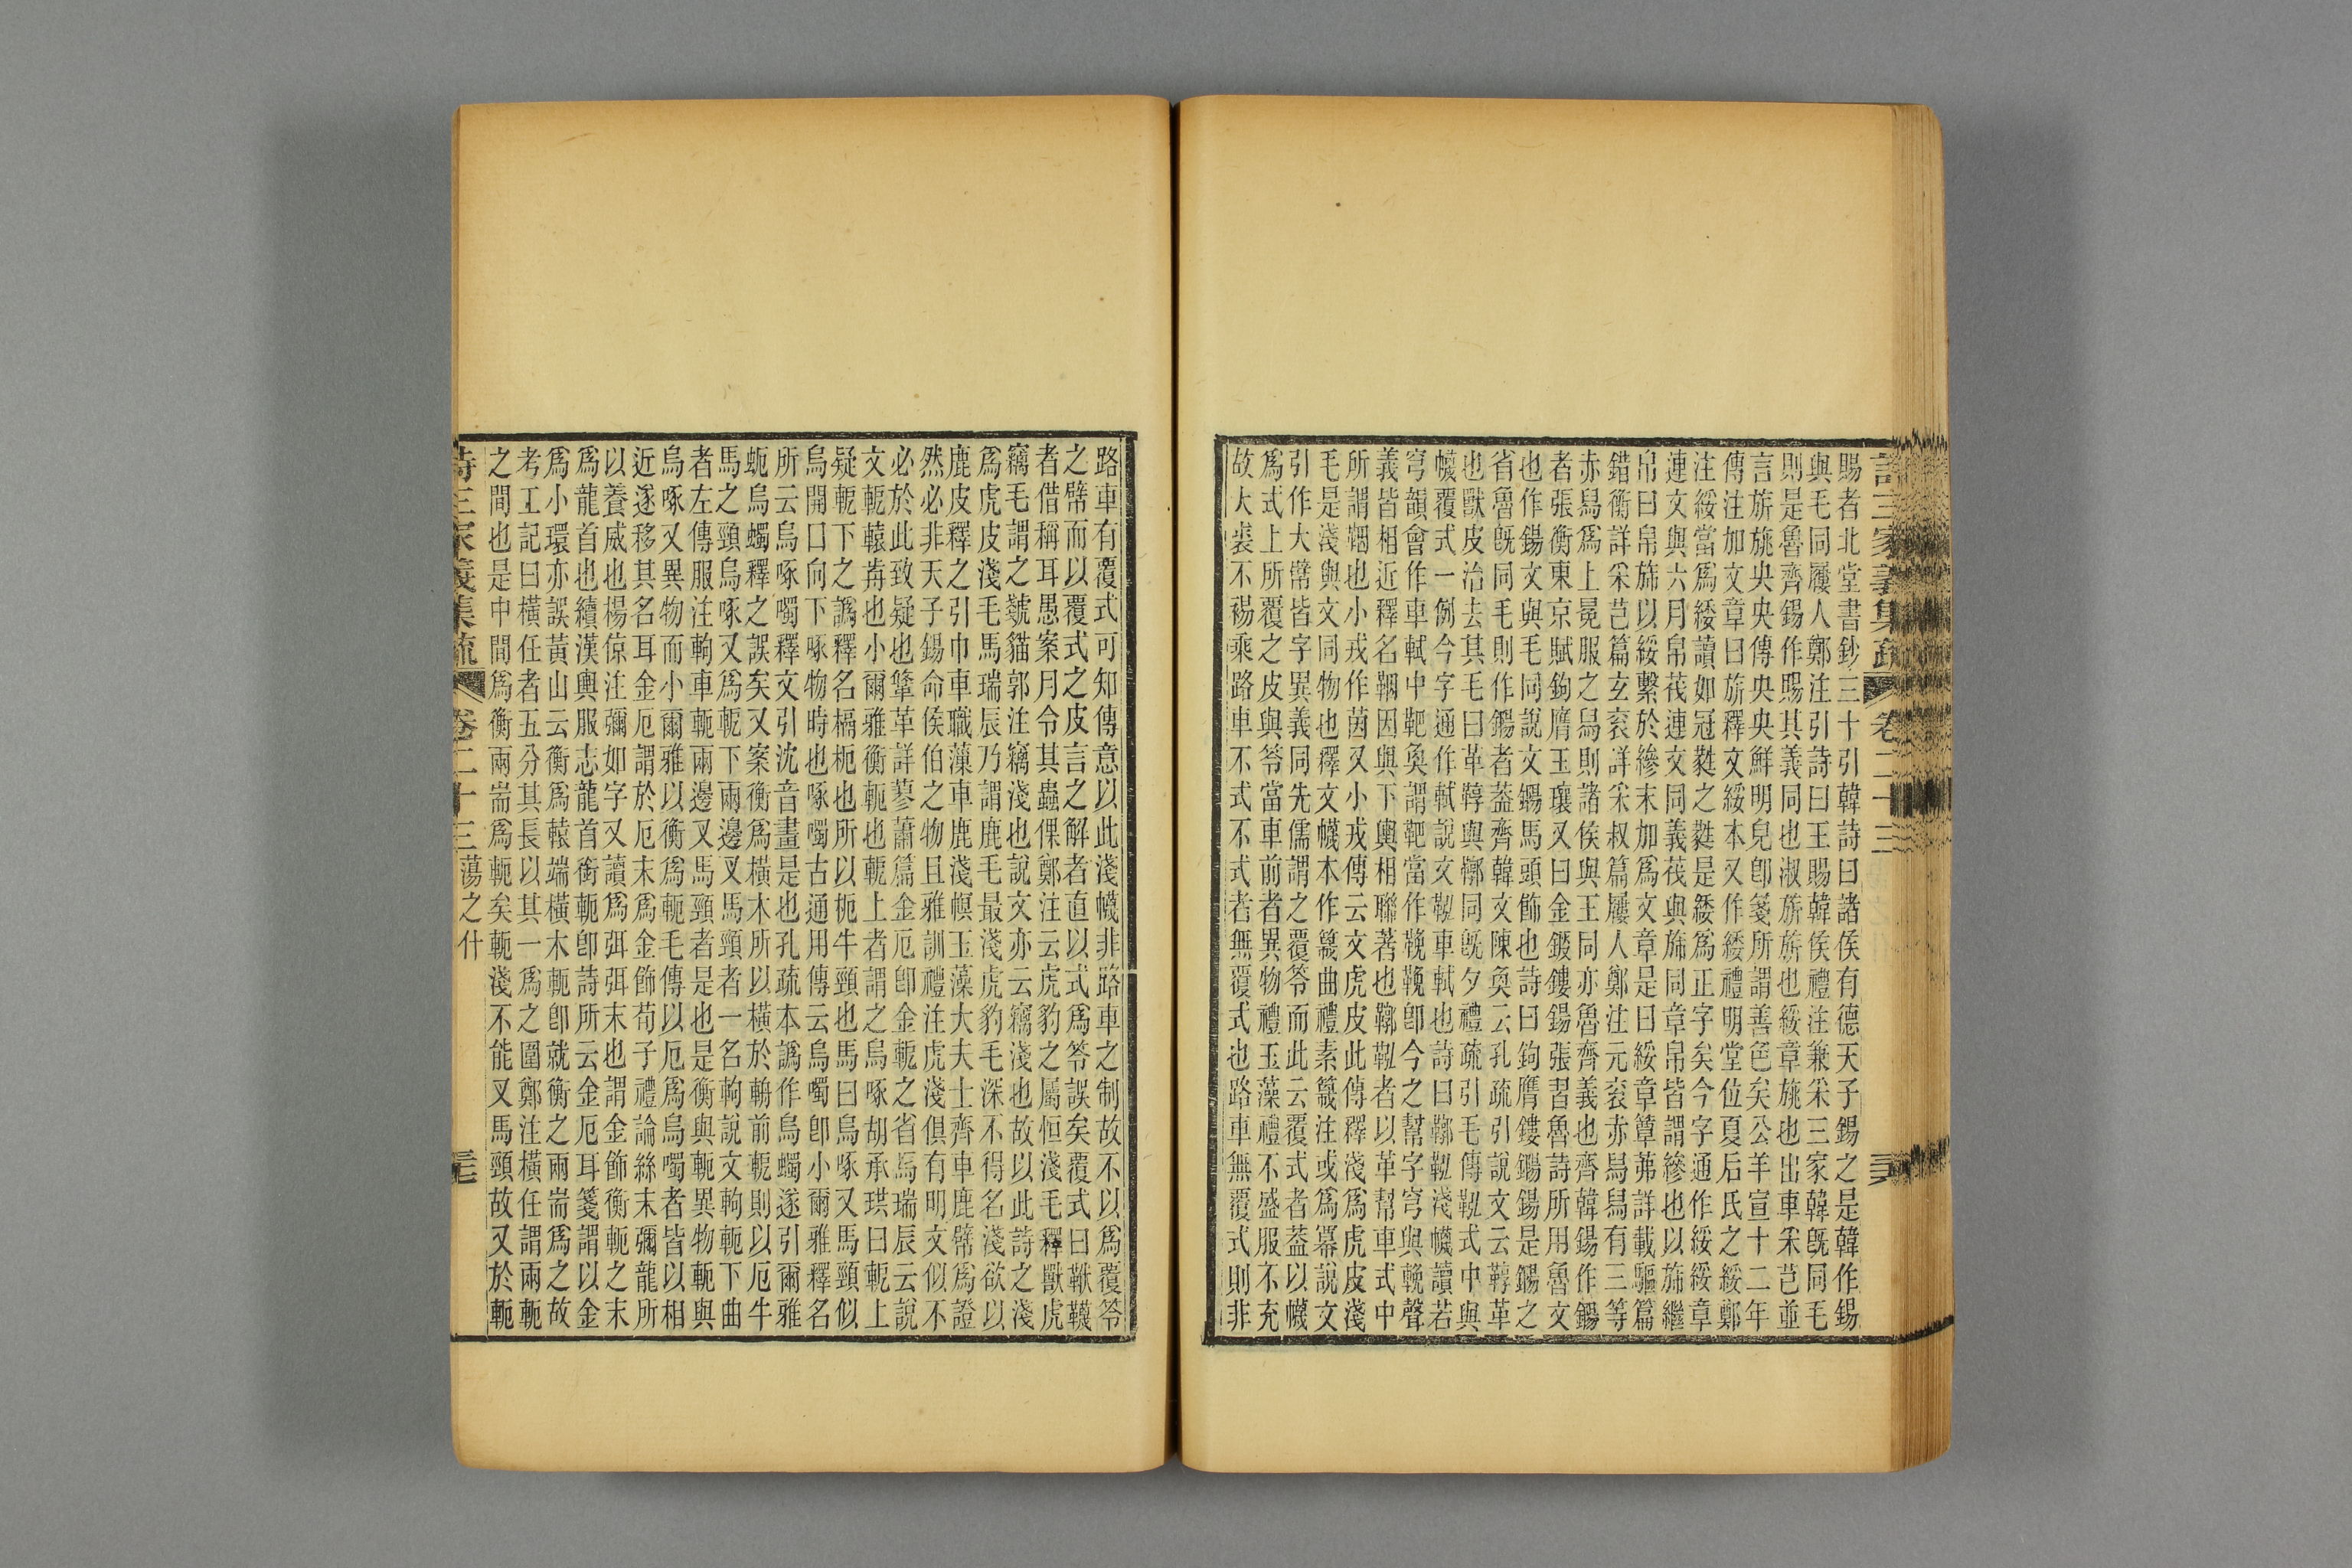 詩三家義集疏 卷二十三 三六
賜者北堂書鈔三十引韓詩曰諸侯有德天子錫之是韓作錫
與毛同屨人鄭注引詩曰王賜韓侯禮注兼采三家韓旣同毛
則是魯齊錫作賜其義同也淑旂旂也綏章旐也出車采芑並
言旂旐央央傳央央鮮明皃卽箋所謂善色矣公羊宣十二年
傳注加文章曰旂釋文綏本又作緌禮明堂位夏后氏之綏鄭
注綏當爲緌讀如冠蕤之蕤是緌爲正字矣今字通作綏綏章
連文與六月帛茷連文同義茷與旆同章帛皆謂縿也以旆繼
帛曰帛旆以綏繫於縿末加爲文章是曰綏章簟茀詳載驅篇
錯衡詳采芑篇玄袞詳采叔篇屨人鄭注元袞赤舄舄有三等
赤舄爲上冕服之舄則諸侯與王同亦魯齊義也齊韓錫作鐊
者張衡東京賦鉤膺玉瓖又曰金鍐鏤鍚張習魯詩所用魯文
也作鍚文與毛同說文鐊馬頭飾也詩曰鉤膺鏤鐊鍚是鐊之
省魯旣同毛則作鐊者葢齊韓文陳奐云孔疏引說文云鞹革
也獸皮治去其毛曰革鞹與鞟同旣夕禮疏引毛傳鞃式中與
幭覆式一例今字通作軾說文鞃車軾也詩曰鞹鞃淺幭讀若
穹韻會作車軾中靶奐謂靶當作鞔鞔卽今之幫字穹與鞔聲
義皆相近釋名鞇因與下輿相聯著也鞹鞃者以革幫車式中
所謂鞇也小戎作茵又小戎傳云文虎皮此傳釋淺爲虎皮淺
毛是淺與文同物也釋文幭本作簚曲禮素簚注或爲冪說文
引作大幦皆字異義同先儒謂之覆笭而此云覆式者葢以幭
爲式上所覆之皮與笭當車前者異物禮玉藻禮不盛服不充
故大裘不裼乘路車不式不式者無覆式也路車無覆式則非
路車有覆式可知傳意以此淺幭非路車之制故不以爲覆笭
之幦而以覆式之皮言之解者直以式爲笭誤矣覆式曰鞎鞿
者借稱耳愚案月令其蟲倮鄭注云虎豹之屬恒淺毛釋獸虎
竊毛謂之虦貓郭注竊淺也說文亦云竊淺也故以此詩之淺
爲虎皮淺毛馬瑞辰乃謂鹿毛最淺虎豹毛深不得名淺欲以
鹿皮釋之引巾車職薻車鹿淺幎玉藻大夫士齊車鹿幦爲證
然必非天子錫命侯伯之物且雅訓禮注虎淺俱有明文似不
必於此致疑也鞗革詳蓼蕭篇金厄卽金軶之省馬瑞辰云說
文軶轅前也小爾雅衡軶也軶上者謂之烏啄胡承珙曰軶上
疑軶下之譌釋名槅枙也所以枙牛頸也馬曰烏啄又馬頸似
烏開口向下啄物時也啄噣古通用傳云烏噣卽小爾雅釋名
所云烏啄噣釋文引沈音畫是也孔疏本譌作烏蠋遂引爾雅
蚅烏蠋釋之誤矣又案衡爲橫木所以橫於輈前軶則以厄牛
馬之頸烏啄又爲軶下兩邊叉馬頸者一名軥說文軥軶下曲
者左傳服注軥車軶兩邊叉馬頸者是也是衡與軶異物軶與
烏啄又異物而小爾雅以衡爲軶毛傳以厄爲烏噣者皆以相
近遂移其名耳金厄謂於厄末爲金飾荀子禮論絲末彌龍所
以養威也楊倞注彌如字又讀爲弭弭末也謂金飾衡軶之末
爲龍首也續漢輿服志龍首銜軶卽詩所云金厄耳箋謂以金
爲小環亦誤黃山云衡爲轅端橫木軶卽就衡之兩耑爲之故
考工記曰橫任者五分其長以其一爲之圍鄭注橫任謂兩軶
之間也是中間爲衡兩耑爲軶矣軶淺不能叉馬頸故又於軶
詩三家義集疏 卷二十三 蕩之什 三七